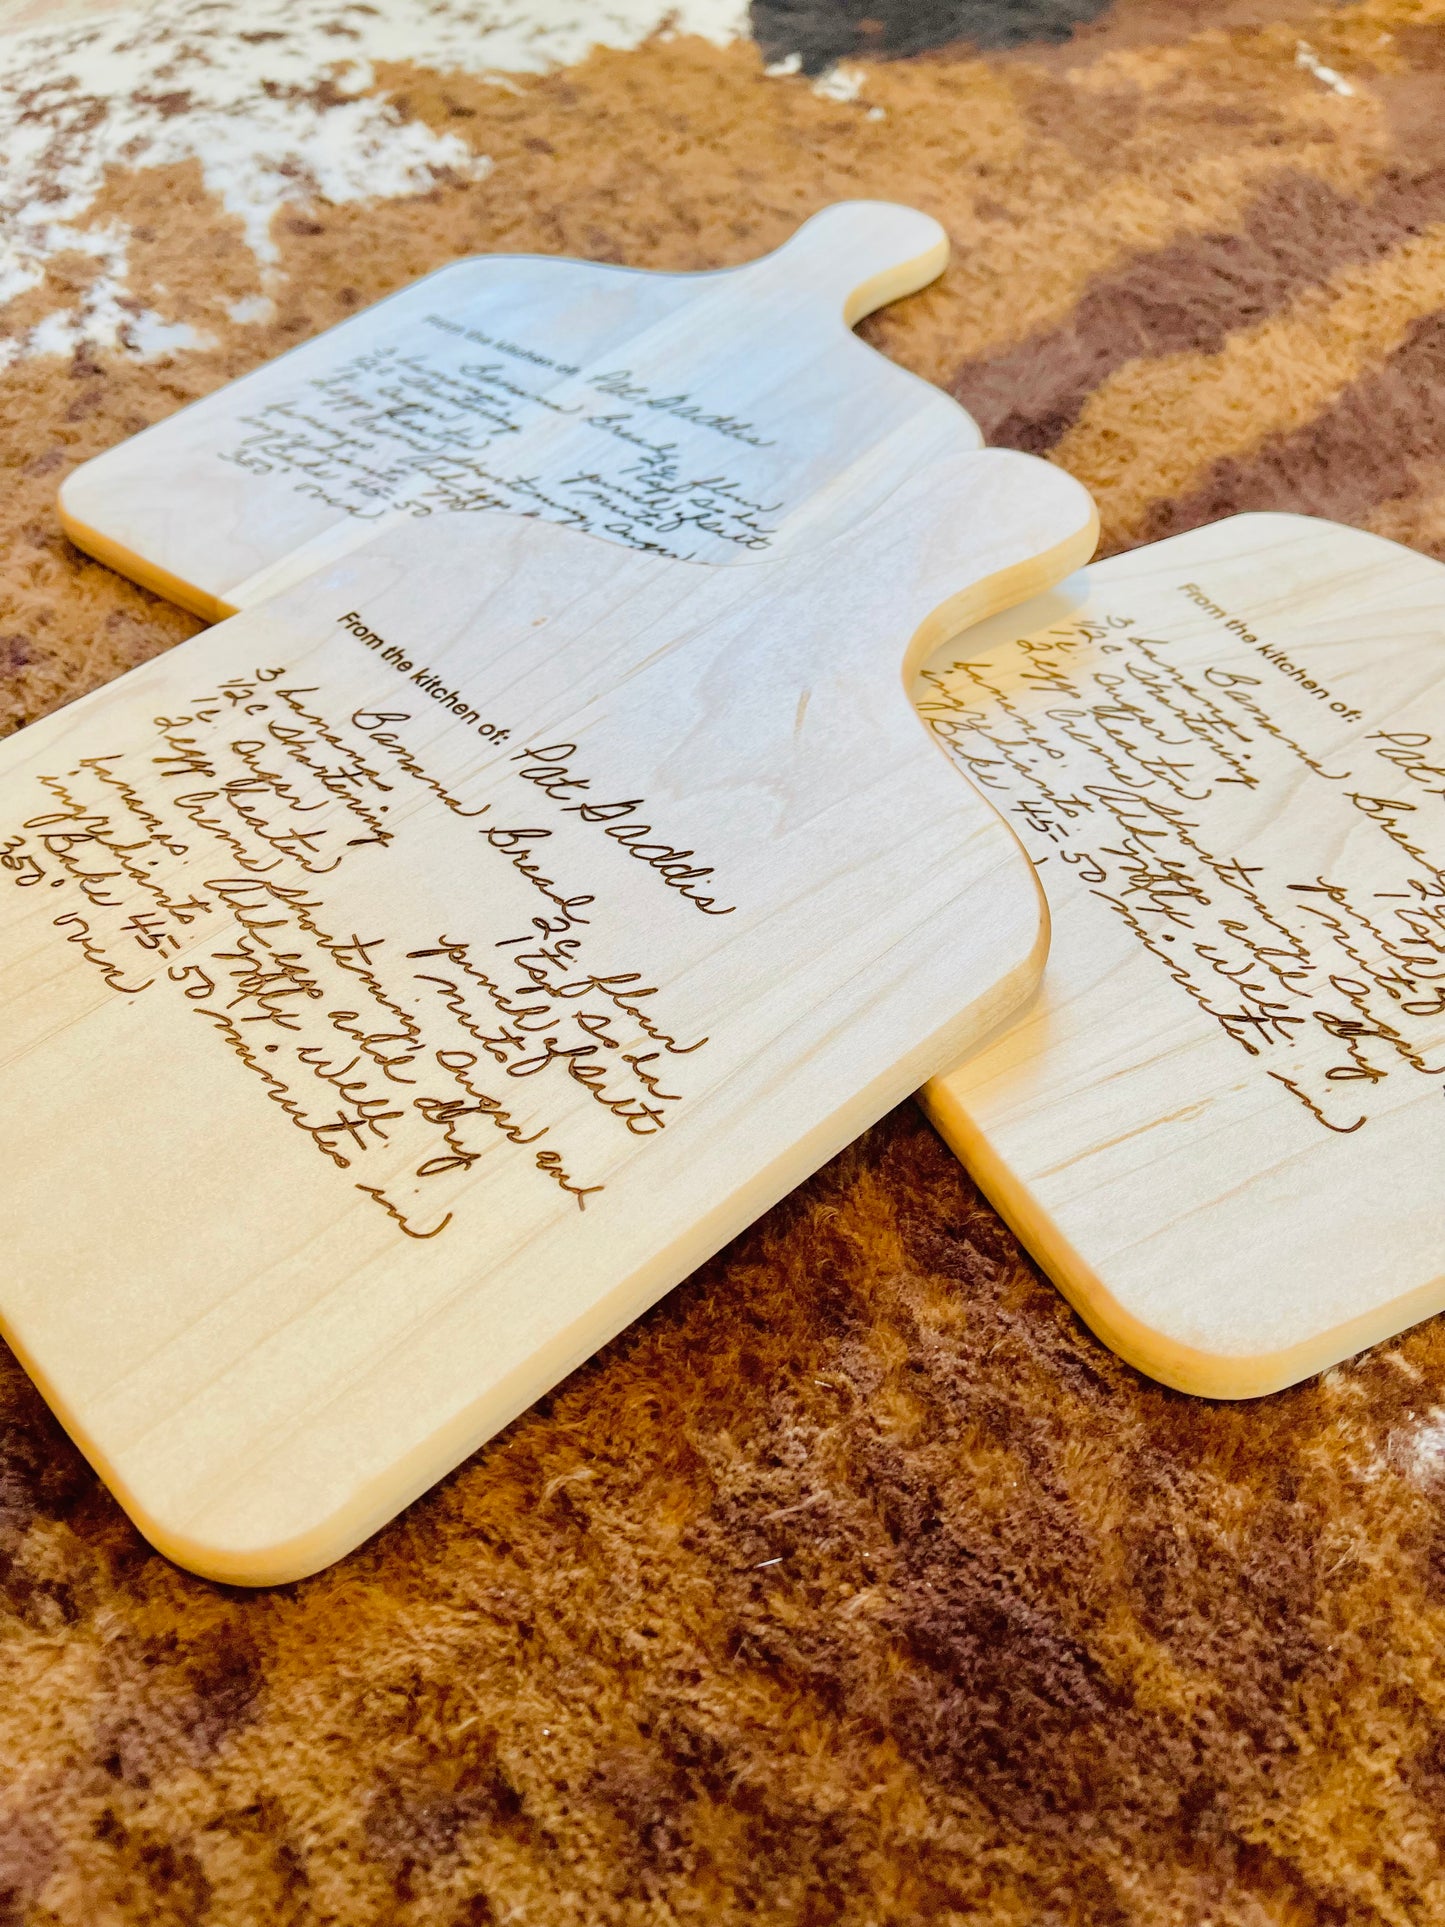 From the kitchen of: Pat Gaddis
Banana Bread
3 bananas 2 c. flour
1/2 c shortening 1 tsp soda
1 c. sugar pinch of salt
2 eggs beaten nuts
Creme shortening, sugar
bananas. Add egg
ingrediants.
Bake 45-50
350° oven.
From the kitchen of: Pat Gaddis
Banana Bread
3 bananas 2 c. flour
1/2 c shortening 1 tsp soda
1 c. sugar pinch of salt
2 eggs beaten nuts
Creme shortening, sugar and
bananas. Add eggs and dry
ingrediants. Mix well.
Bake 45-50 minutes in
350° oven.
From the kitchen of: Pat
Banana Bread
3 bananas 2 c
1/2 c shortening 1 tsp
1 c. sugar pinch
2 eggs beaten nuts
Creme shortening, sugar
bananas. Add eggs and dry
ingrediants. Mix well.
Bake 45-50 minutes in